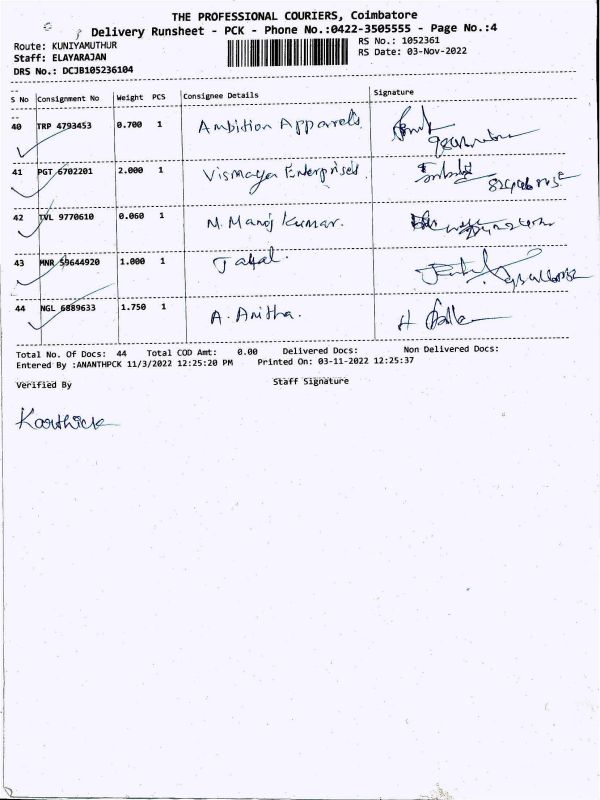 THE PROFESSIONAL COURIERS, Coimbatore
Delivery Runsheet - PCK - Phone No.:0422-3505555 - Page No.:4
Route: KUNIYAMUTHUR
RS No.: 1052361
Staff: ELAYARAJAN
RS Date: 03-Nov-2022
DRS No.: DCJB105236104
S No Consignment No Weight PCS Consignee Details Signature
40 TRP 4793453 0.700 1 Ambition Apparels
41 PGT 6702201 2.000 1 Vismaya Enterprises.
42 TVL 9770610 0.060 1 M. Manoj Kumar.
43 MNR 59644920 1.000 1
44 NGL 6889633 1.750 1 A. Anitha.
Total No. Of Docs: 44 Total COD Amt: 0.00 Delivered Docs: Non Delivered Docs:
Entered By :ANANTHPCK 11/3/2022 12:25:20 PM Printed On: 03-11-2022 12:25:37
Verified By Staff Signature
Karthick